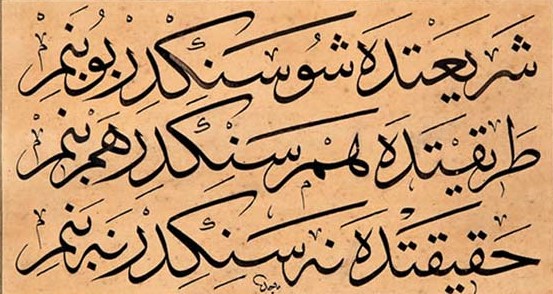 شریعتده شو سنكدر بو بنم
طریقتده هم سنكدر هم بنم
حقیقتده نه سنكدر نه بنم